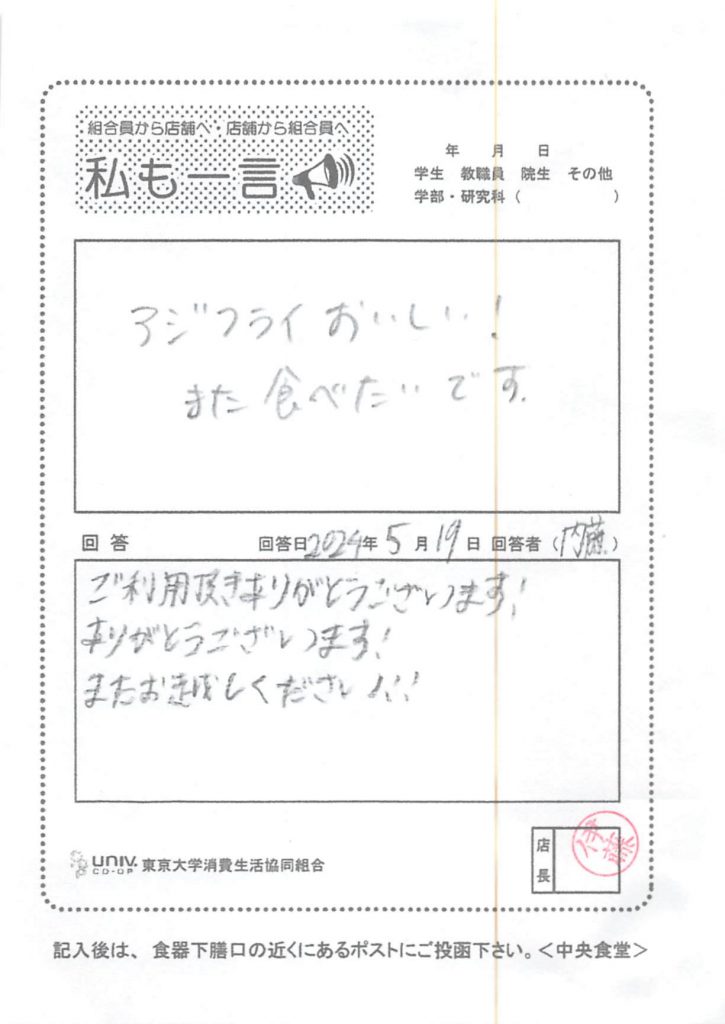 組合員から店舗へ・店舗から組合員へ
私も一言
年 月 日
学生 教職員 院生 その他
学部・研究科（ ）
アジフライおいしい！
また食べたいです。
回答 回答日2024年5月19日 回答者（内藤）
ご利用頂きありがとうございます！
ありがとうございます！
またお越しください！！
univ. CO-OP 東京大学消費生活協同組合
店長
伊藤
記入後は、食器下膳口の近くにあるポストにご投函下さい。＜中央食堂＞